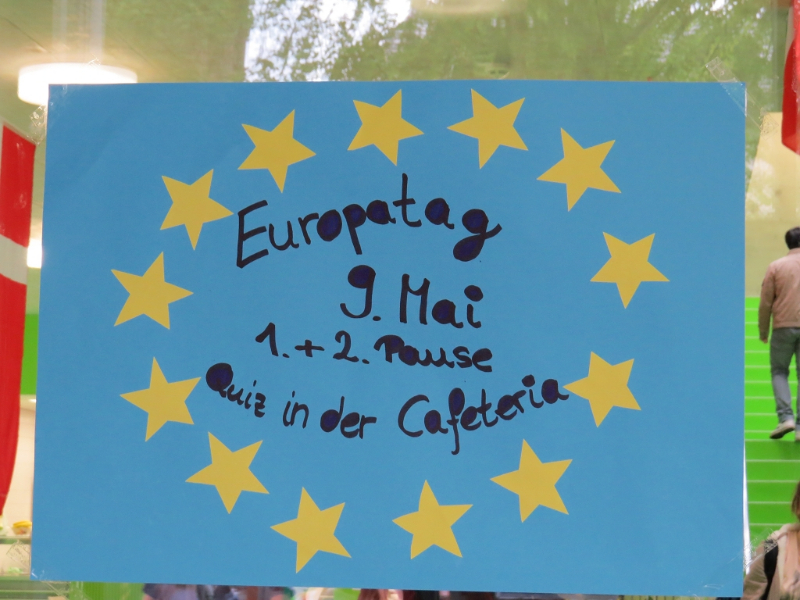 Europatag
9. Mai
1. + 2. Pause
Quiz in der Cafeteria